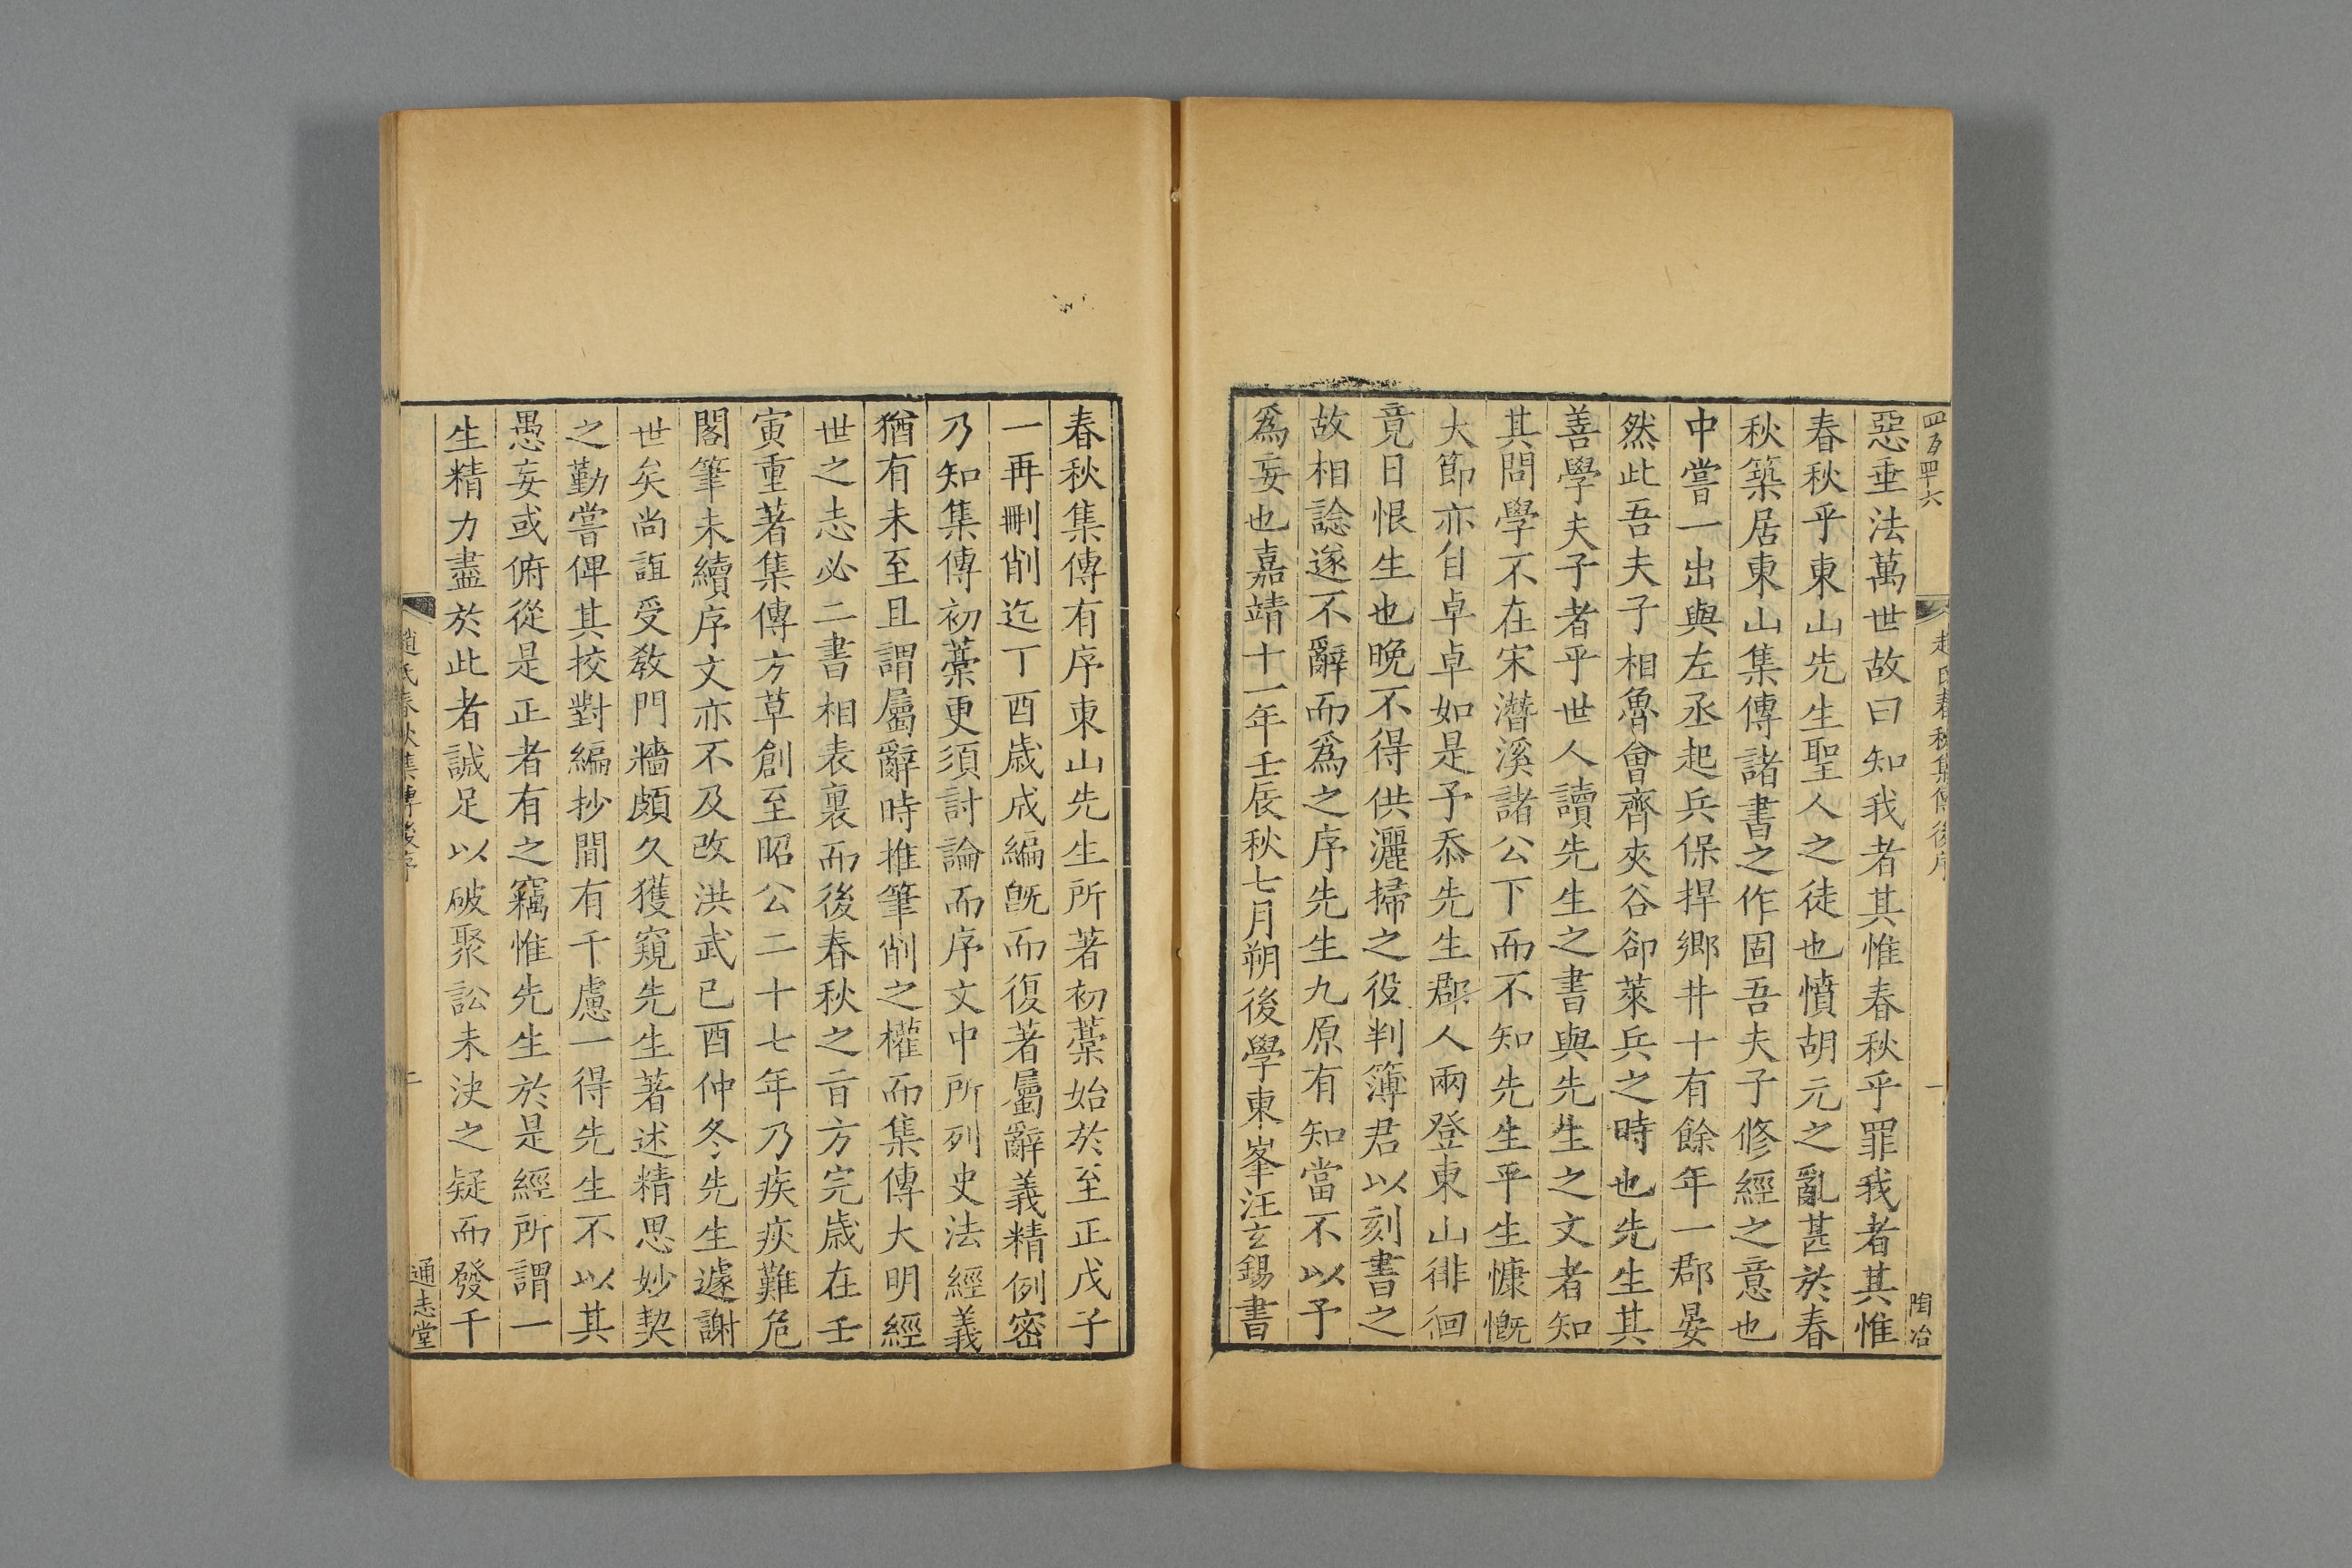 四百四十六
趙氏春秋集傳後序
一
陶冶
惡垂法萬世故曰知我者其惟春秋乎罪我者其惟
春秋乎東山先生聖人之徒也憤胡元之亂甚於春
秋築居東山集傳諸書之作固吾夫子修經之意也
中嘗一出與左丞起兵保捍鄉井十有餘年一郡晏
然此吾夫子相魯會齊夾谷卻萊兵之時也先生其
善學夫子者乎世人讀先生之書與先生之文者知
其問學不在宋潛溪諸公下而不知先生平生慷慨
大節亦自卓卓如是予忝先生郡人兩登東山徘徊
竟日恨生也晚不得供灑掃之役判簿君以刻書之
故相諗遂不辭而爲之序先生九原有知當不以予
爲妄也嘉靖十一年壬辰秋七月朔後學東峯汪玄錫書
春秋集傳有序東山先生所著初藳始於至正戊子
一再刪削迄丁酉歳成編旣而復著屬辭義精例密
乃知集傳初藳更須討論而序文中所列史法經義
猶有未至且謂屬辭時推筆削之權而集傳大明經
世之志必二書相表裏而後春秋之旨方完歳在壬
寅重著集傳方草創至昭公二十七年乃疾疢難危
閣筆未續序文亦不及改洪武己酉仲冬先生遽謝
世矣尚誼受教門牆頗久獲窺先生著述精思妙契
之勤嘗俾其挍對編抄間有千慮一得先生不以其
愚妄或俯從是正者有之竊惟先生於是經所謂一
生精力盡於此者誠足以破聚訟未決之疑而發千
趙氏春秋集傳後序
通志堂